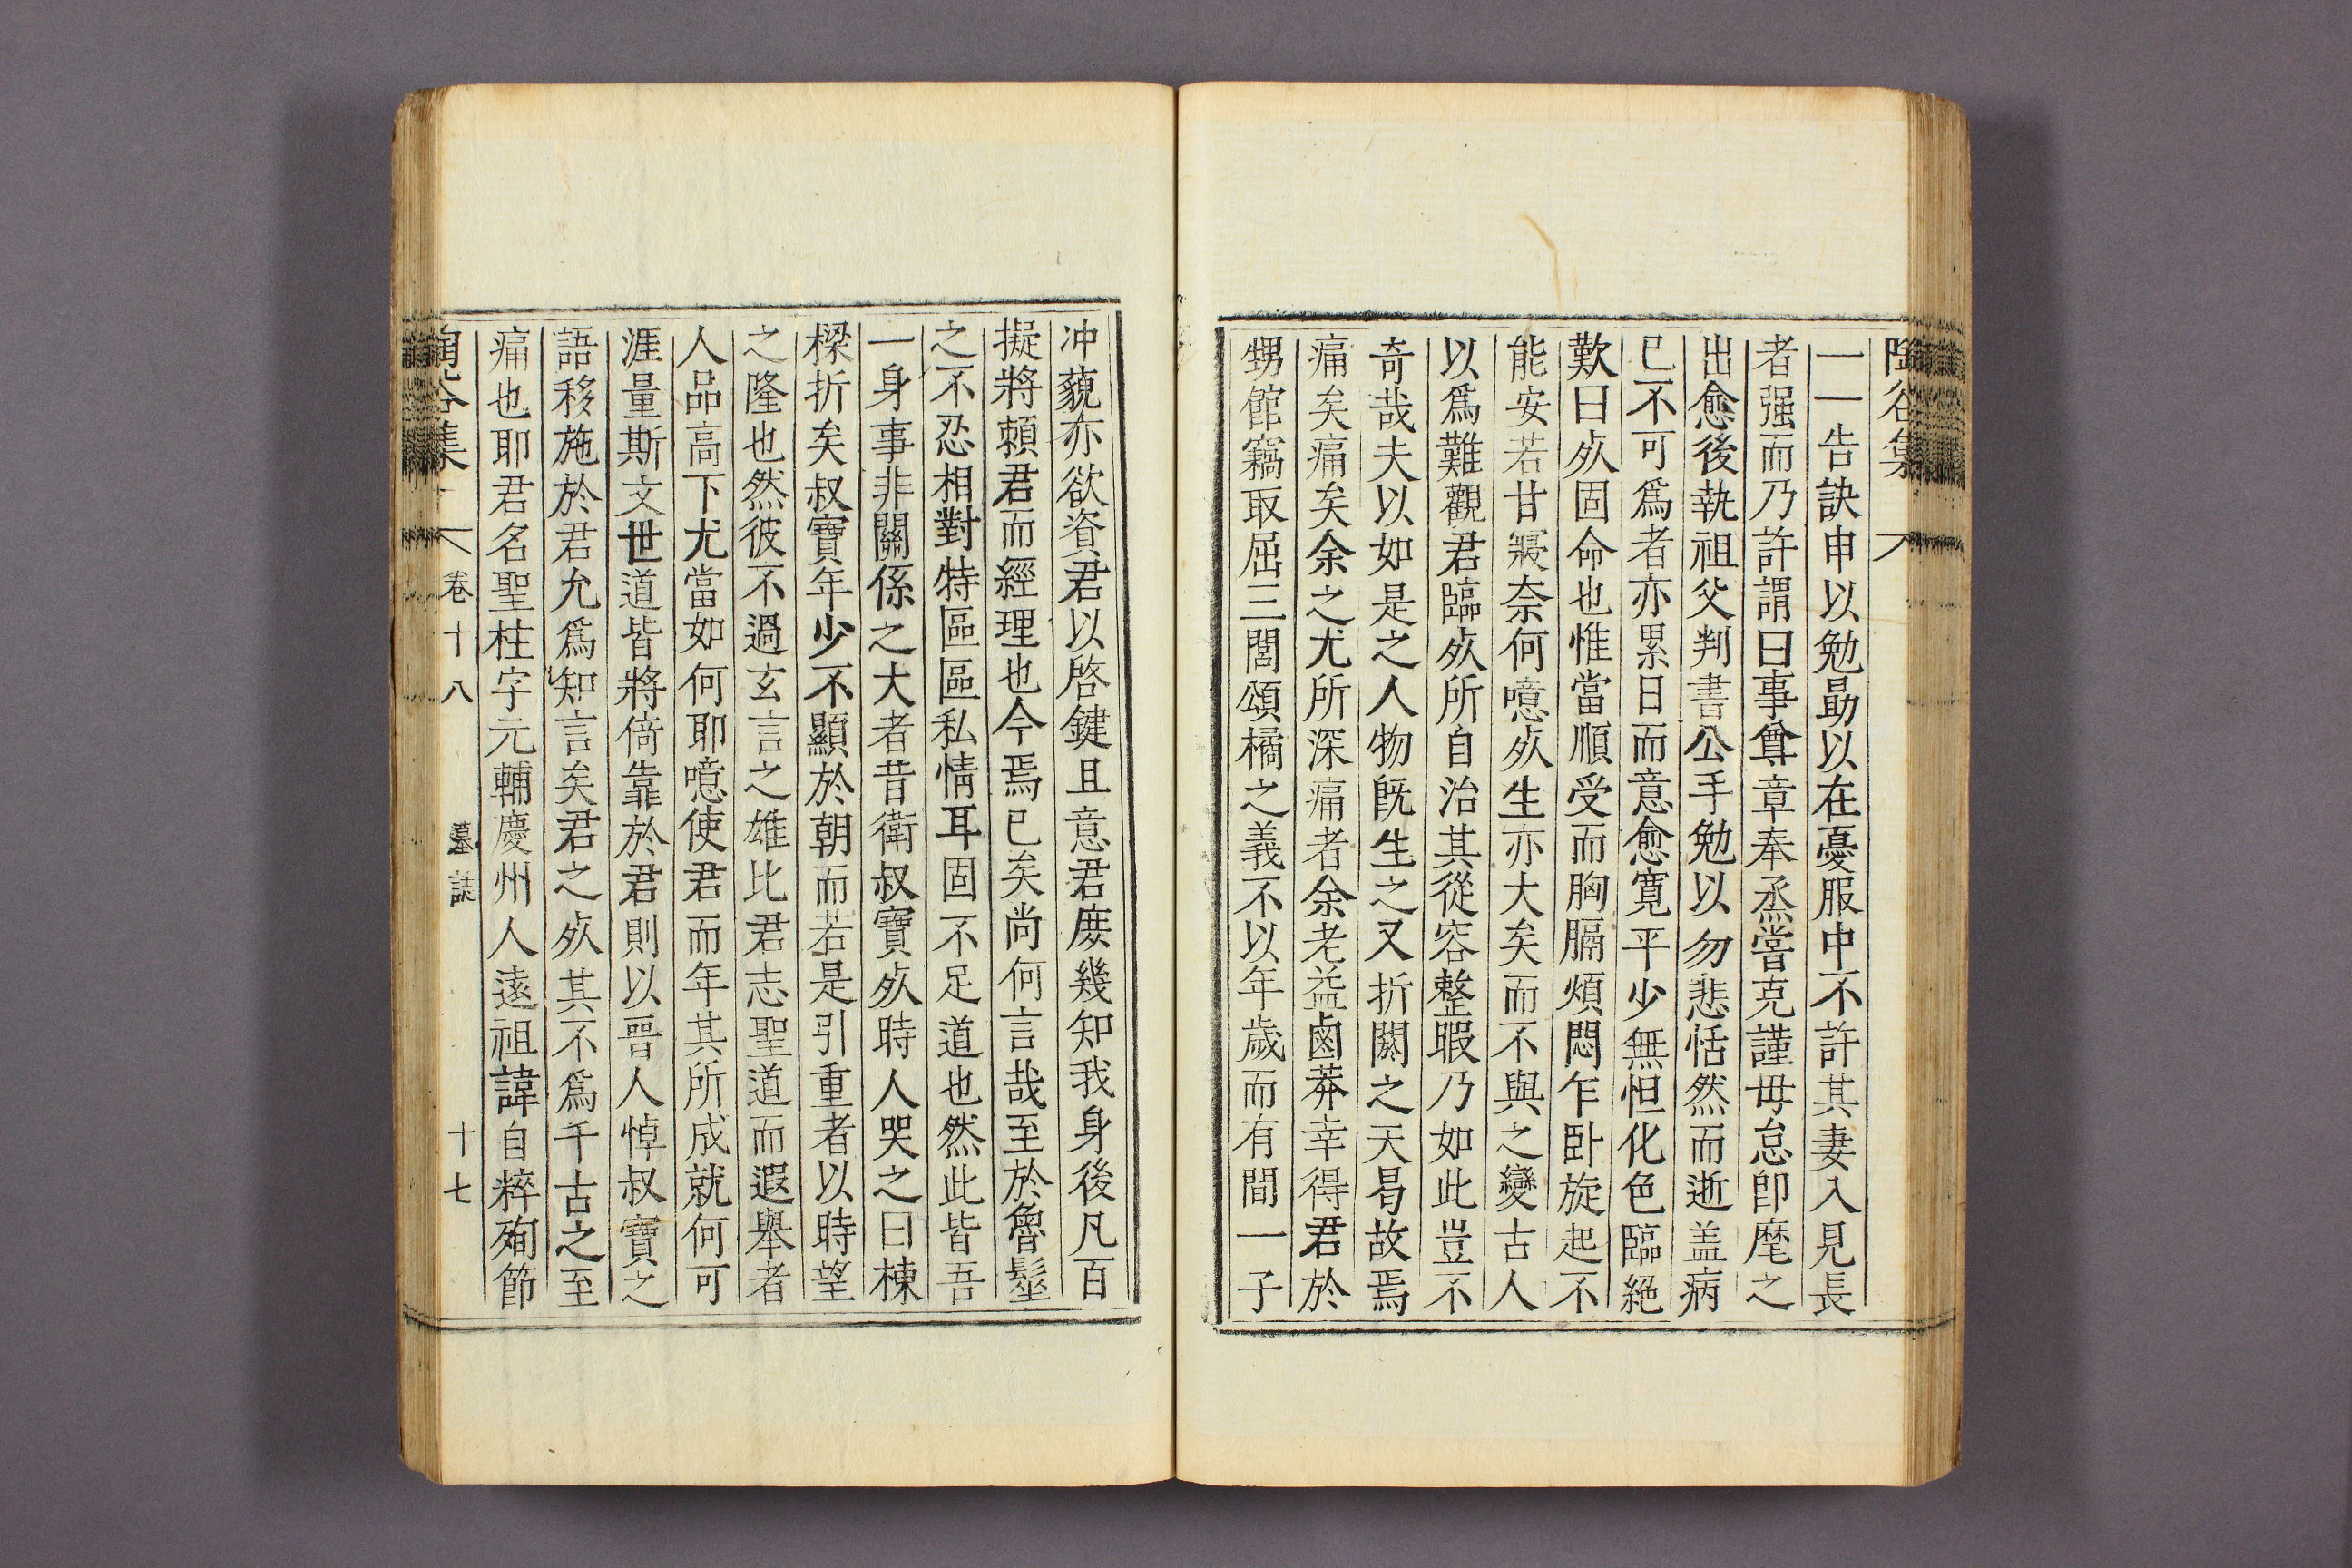 陶谷集
一一告訣申以勉勗以在憂服中不許其妻入見長
者强而乃許謂曰事尊章奉烝嘗克謹毋怠卽麾之
出愈後執祖父判書公手勉以勿悲恬然而逝盖病
已不可爲者亦累日而意愈寬平少無怛化色臨絕
歎曰死固命也惟當順受而胸膈煩悶乍卧旋起不
能安若甘寢奈何噫死生亦大矣而不與之變古人
以爲難觀君臨死所自治其從容整暇乃如此豈不
奇哉夫以如是之人物旣生之又折閼之天曷故焉
痛矣痛矣余之尤所深痛者余老益鹵莽幸得君於
甥館竊取屈三閭頌橘之義不以年歲而有間一子
冲藐亦欲資君以啓鍵且意君庶幾知我身後凡百
擬將賴君而經理也今焉已矣尚何言哉至於魯髽
之不忍相對特區區私情耳固不足道也然此皆吾
一身事非關係之大者昔衛叔寶死時人哭之曰棟
樑折矣叔寶年少不顯於朝而若是引重者以時望
之隆也然彼不過玄言之雄比君志聖道而遐擧者
人品高下尤當如何耶噫使君而年其所成就何可
涯量斯文世道皆將倚靠於君則以晉人悼叔寶之
語移施於君允爲知言矣君之死其不爲千古之至
痛也耶君名聖柱字元輔慶州人遠祖諱自粹殉節
陶谷集 卷十八 墓誌 十七